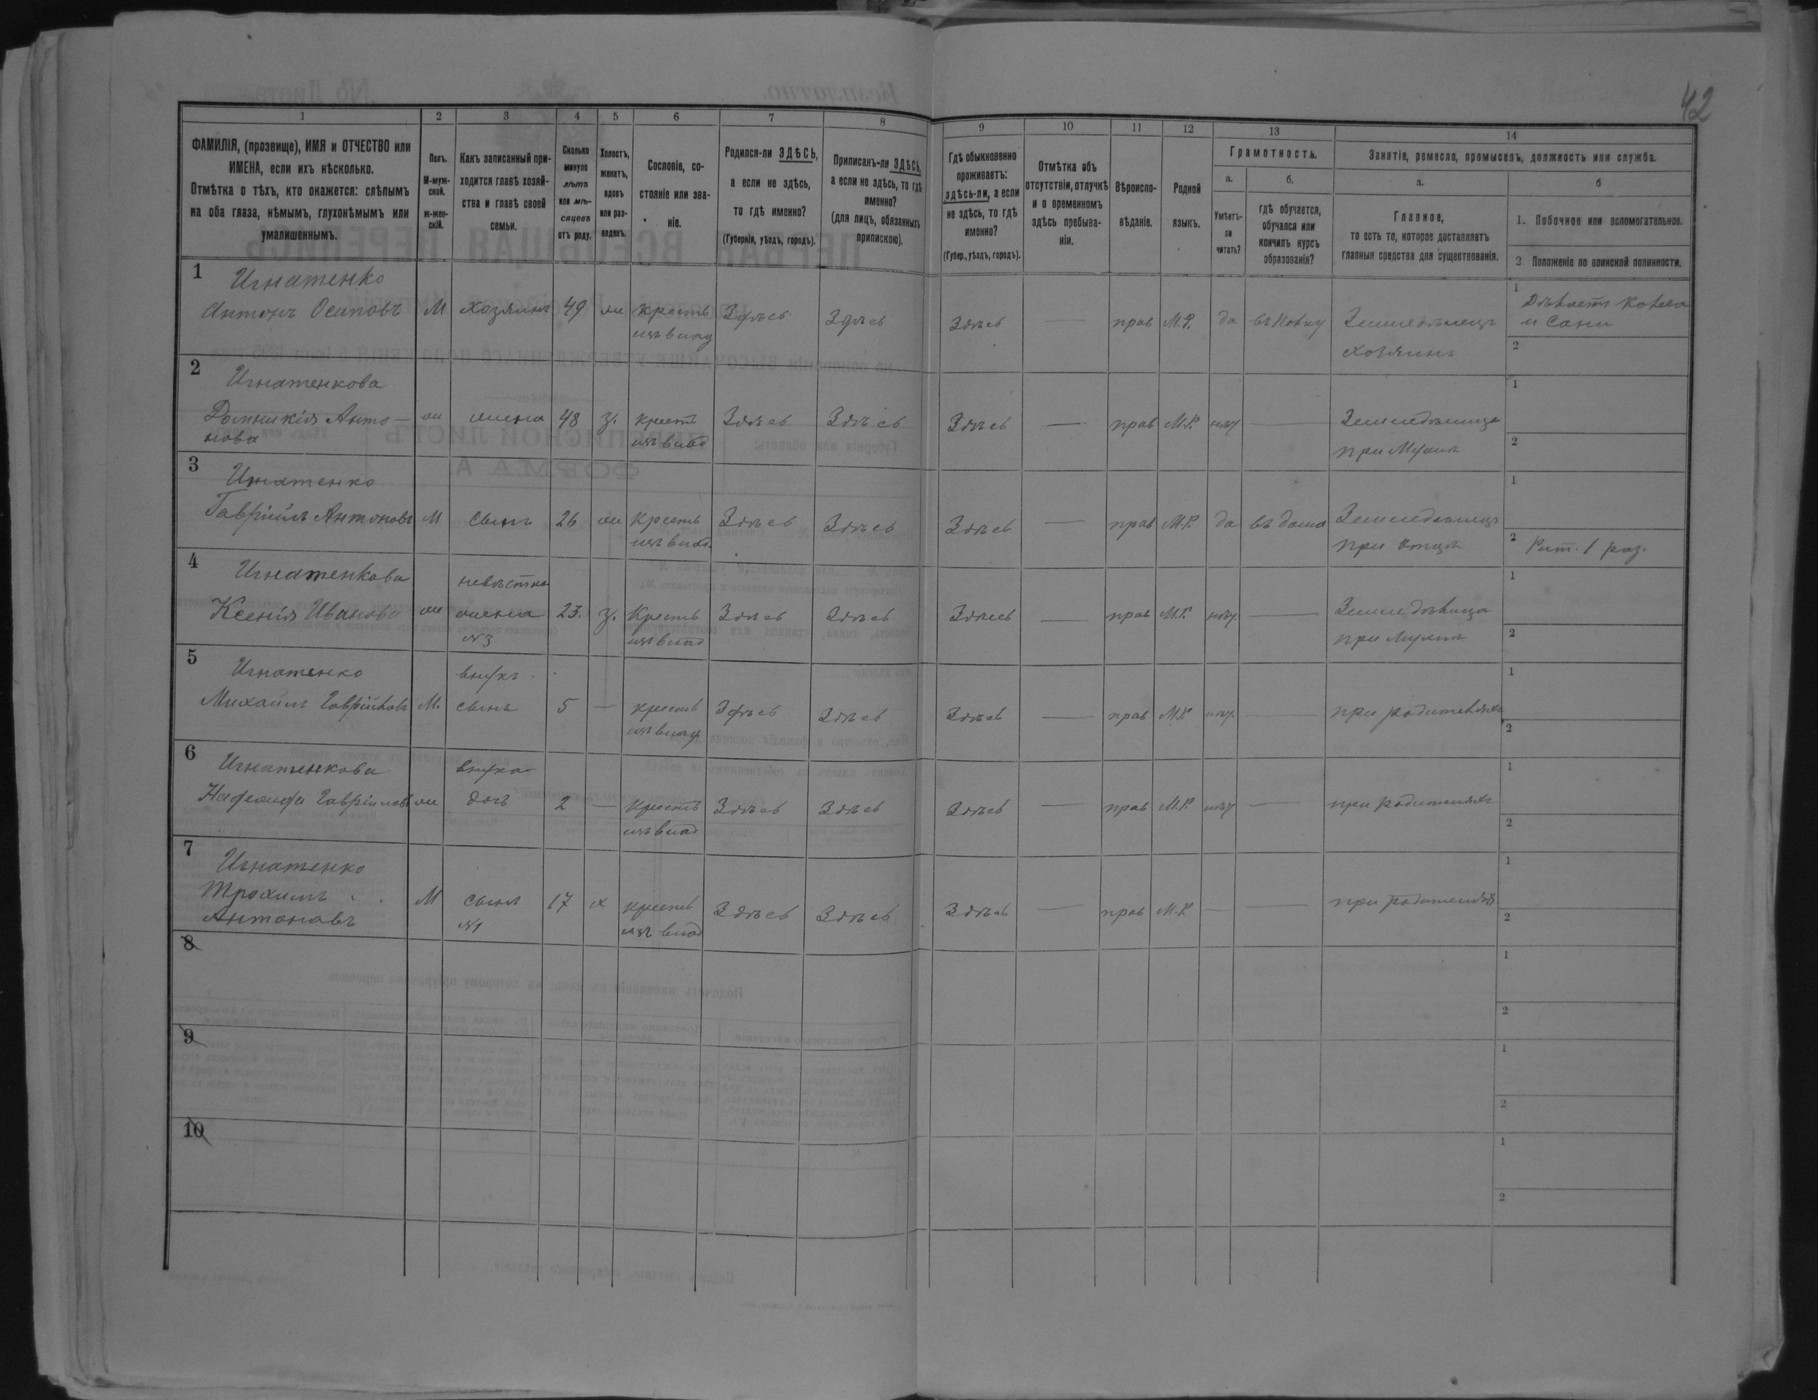 42
1 2 3 4 5 6 7 8 9 10 11 12 13 14
ФАМИЛІЯ, (прозвище), ИМЯ и ОТЧЕСТВО или
ИМЕНА, если ихъ нѣсколько.
Отмѣтка о тѣхъ, кто окажется: слѣпымъ
на оба глаза, нѣмымъ, глухонѣмымъ или
умалишеннымъ.
Полъ.
М-муж-
ской.
ж-жен-
скій.
Какъ записанный при-
ходится главѣ хозяй-
ства и главѣ своей
семьи.
Сколько
минуло
лѣтъ
или мѣ-
сяцевъ
отъ роду.
Холостъ,
женатъ,
вдовъ
или раз-
веденъ.
Сословіе, со-
стояніе или зва-
ніе.
Родился-ли ЗДѢСЬ,
а если не здѣсь,
то гдѣ именно?
(Губернія, уѣздъ, городъ).
Приписанъ-ли ЗДѢСЬ,
а если не здѣсь, то гдѣ
именно?
(для лицъ, обязанныхъ
припискою).
Гдѣ обыкновенно
проживаетъ:
здѣсь-ли, а если
не здѣсь, то гдѣ
именно?
(Губер., уѣздъ, городъ).
Отмѣтка объ
отсутствіи, отлучкѣ
и о временномъ
здѣсь пребыва-
ніи.
Вѣроиспо-
вѣданіе.
Родной
языкъ.
Грамотность.
а.
Умѣетъ-
ли
читать?
б.
гдѣ обучается,
обучался или
кончилъ курсъ
образованія?
Занятіе, ремесло, промыселъ, должность или служба.
а.
Главное,
то есть то, которое доставляетъ
главныя средства для существованія.
б
1. Побочное или вспомогательное.
2 Положеніе по воинской повинности.
1 Игнатенко
Антонъ Осиповъ М хозяинъ 49 ж Крестъ Здѣсь Здѣсь Здѣсь — прав М.Р. да Земледѣлецъ
хозяинъ
1 Дѣлаетъ колеса
и сани
2
2 Игнатенкова
Анто-
нова ж жена 48 з. крест Здѣсь Здѣсь Здѣсь — прав М.Р. нѣт — Земледѣлица
при Мужѣ
1
2
3 Игнатенко
Гавріилъ Антоновъ М сынъ 26 ж Крестъ Здѣсь Здѣсь Здѣсь — прав М.Р. да въ дома Земледѣлецъ
при отцѣ
1
2 Рат. 1 раз.
4 Игнатенкова невѣстка
Ксенія Иванова ж жена 23. з. Крестъ Здѣсь Здѣсь Здѣсь — прав М.Р. нѣт. — Земледѣлица
N3 при Мужѣ
1
2
5 Игнатенко внукъ
Михаилъ Гавріиловъ М. сынъ 5 — крестъ Здѣсь Здѣсь Здѣсь — прав М.Р. нѣт. — при родителяхъ
1
2
6 Игнатенкова внука
Гавріилова ж дочь 2 — Крестъ Здѣсь Здѣсь Здѣсь — прав М.Р. нѣт — при родителяхъ
1
2
7 Игнатенко
Трохимъ М сынъ 17 х крестъ Здѣсь Здѣсь Здѣсь — прав М.Р. — — при родителяхъ
Антоновъ N1
1
2
8
1
2
9
1
2
10
1
2